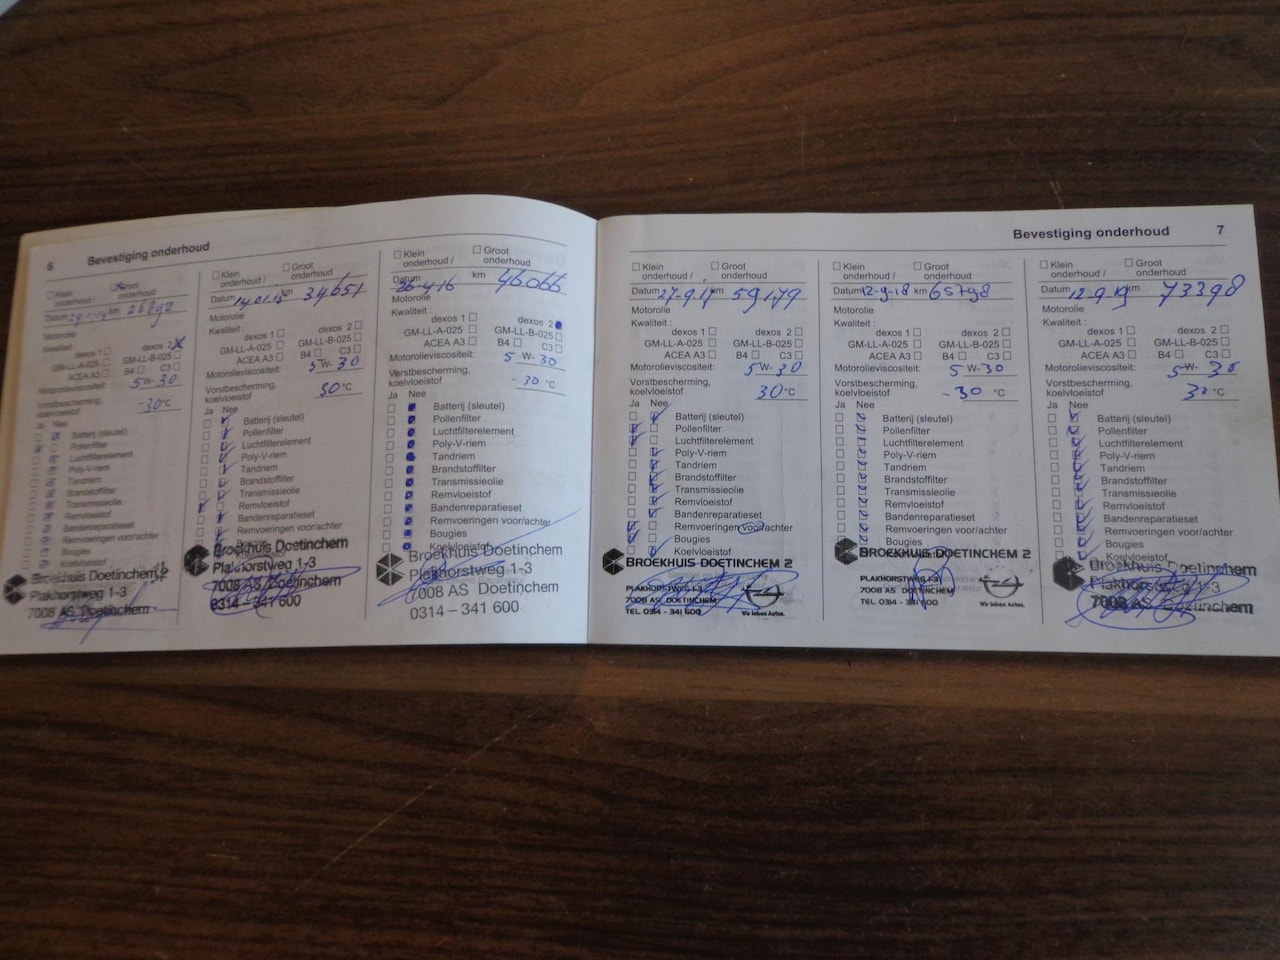 6 Bevestiging onderhoud
Klein onderhoud / Groot onderhoud
Datum km
Motorolie
Kwaliteit :
dexos 1 dexos 2
GM-LL-A-025 GM-LL-B-025
ACEA A3 B4 C3
Motorolieviscositeit: 5 W- 30
Vorstbescherming,
koelvloeistof -30 °C
Ja Nee
Batterij (sleutel)
Pollenfilter
Luchtfilterelement
Poly-V-riem
Tandriem
Brandstoffilter
Transmissieolie
Remvloeistof
Bandenreparatieset
Remvoeringen voor/achter
Bougies
Koelvloeistof
Broekhuis Doetinchem 2
Plakhorstweg 1-3
7008 AS Doetinchem
Klein Groot
onderhoud / onderhoud
Datum km 34651
Motorolie
Kwaliteit :
dexos 1 dexos 2
GM-LL-A-025 GM-LL-B-025
ACEA A3 B4 C3
Motorolieviscositeit: 5 W- 30
Vorstbescherming,
koelvloeistof 30 °C
Ja Nee
Batterij (sleutel)
Pollenfilter
Luchtfilterelement
Poly-V-riem
Tandriem
Brandstoffilter
Transmissieolie
Remvloeistof
Bandenreparatieset
Remvoeringen voor/achter
Bougies
Broekhuis Doetinchem
Plakhorstweg 1-3
7008 AS Doetinchem
0314 – 341 600
Klein Groot
onderhoud / onderhoud
Datum km 46066
Motorolie
Kwaliteit :
dexos 1 dexos 2
GM-LL-A-025 GM-LL-B-025
ACEA A3 B4 C3
Motorolieviscositeit: 5 W- 30
Vorstbescherming,
koelvloeistof -30 °C
Ja Nee
Batterij (sleutel)
Pollenfilter
Luchtfilterelement
Poly-V-riem
Tandriem
Brandstoffilter
Transmissieolie
Remvloeistof
Bandenreparatieset
Remvoeringen voor/achter
Bougies
Koelvloeistof
Broekhuis Doetinchem
Plakhorstweg 1-3
7008 AS Doetinchem
0314 – 341 600
Bevestiging onderhoud 7
Klein Groot
onderhoud / onderhoud
Datum 27-9-17 km 59179
Motorolie
Kwaliteit :
dexos 1 dexos 2
GM-LL-A-025 GM-LL-B-025
ACEA A3 B4 C3
Motorolieviscositeit: 5 W- 30
Vorstbescherming,
koelvloeistof 30 °C
Ja Nee
Batterij (sleutel)
Pollenfilter
Luchtfilterelement
Poly-V-riem
Tandriem
Brandstoffilter
Transmissieolie
Remvloeistof
Bandenreparatieset
Remvoeringen voor/achter
Bougies
Koelvloeistof
BROEKHUIS DOETINCHEM 2
PLAKHORSTWEG 1-3
7008 AS DOETINCHEM
TEL. 0314 - 341 600
Wir leben Autos.
Klein Groot
onderhoud / onderhoud
Datum 12-9-18 km 65798
Motorolie
Kwaliteit :
dexos 1 dexos 2
GM-LL-A-025 GM-LL-B-025
ACEA A3 B4 C3
Motorolieviscositeit: 5 W- 30
Vorstbescherming,
koelvloeistof -30 °C
Ja Nee
Batterij (sleutel)
Pollenfilter
Luchtfilterelement
Poly-V-riem
Tandriem
Brandstoffilter
Transmissieolie
Remvloeistof
Bandenreparatieset
Remvoeringen voor/achter
Bougies
BROEKHUIS DOETINCHEM 2
PLAKHORSTWEG 1-3
7008 AS DOETINCHEM
TEL. 0314 - 341 600
Wir leben Autos.
Klein Groot
onderhoud / onderhoud
Datum 12-9-19 km 73398
Motorolie
Kwaliteit :
dexos 1 dexos 2
GM-LL-A-025 GM-LL-B-025
ACEA A3 B4 C3
Motorolieviscositeit: 5 W- 30
Vorstbescherming,
koelvloeistof 30 °C
Ja Nee
Batterij (sleutel)
Pollenfilter
Luchtfilterelement
Poly-V-riem
Tandriem
Brandstoffilter
Transmissieolie
Remvloeistof
Bandenreparatieset
Remvoeringen voor/achter
Bougies
Koelvloeistof
Broekhuis Doetinchem
Plakhorstweg 1-3
7008 AS Doetinchem